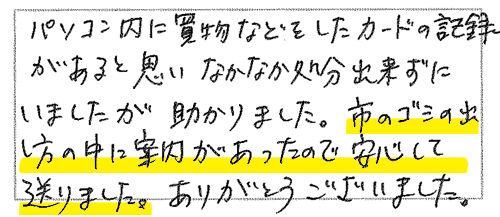 パソコン内に買物などをしたカードの記録
があると思いなかなか処分出来ずに
いましたが 助かりました。市のゴミの出
し方の中に案内があったので安心して
送りました。ありがとうございました。